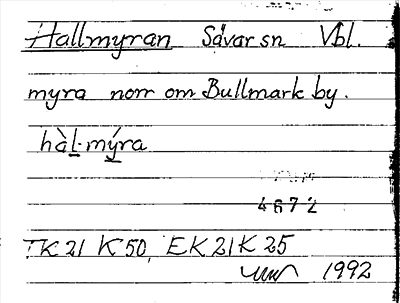 Hallmyran Sävar sn Vbl.
myra norr om Bullmark by.
hàl-mýra
4672
TK 21 K 50, EK 21 K 25
1992